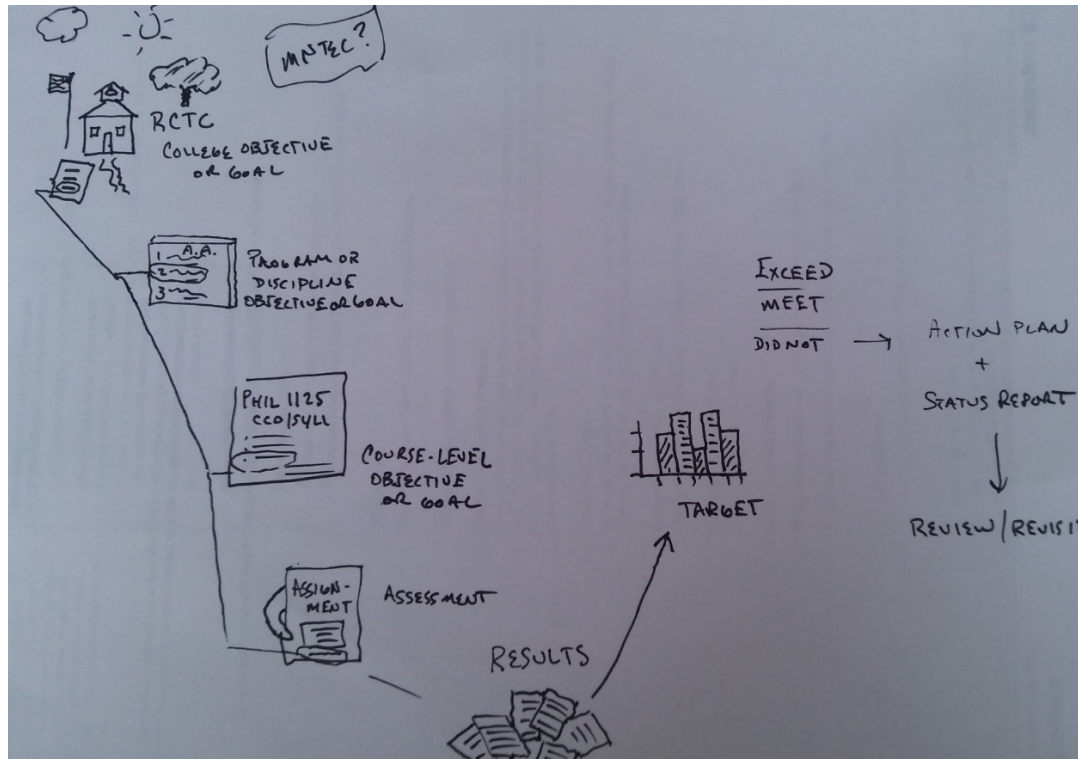 MNTEC?
RCTC
COLLEGE OBJECTIVE
OR GOAL
1 A.A.
2
3
PROGRAM OR
DISCIPLINE
OBJECTIVE OR GOAL
PHIL 1125
CCO/SYLL
COURSE-LEVEL
OBJECTIVE
OR GOAL
ASSIGN-
MENT
ASSESSMENT
RESULTS
TARGET
EXCEED
MEET
DID NOT
ACTION PLAN
+
STATUS REPORT
REVIEW/REVISI